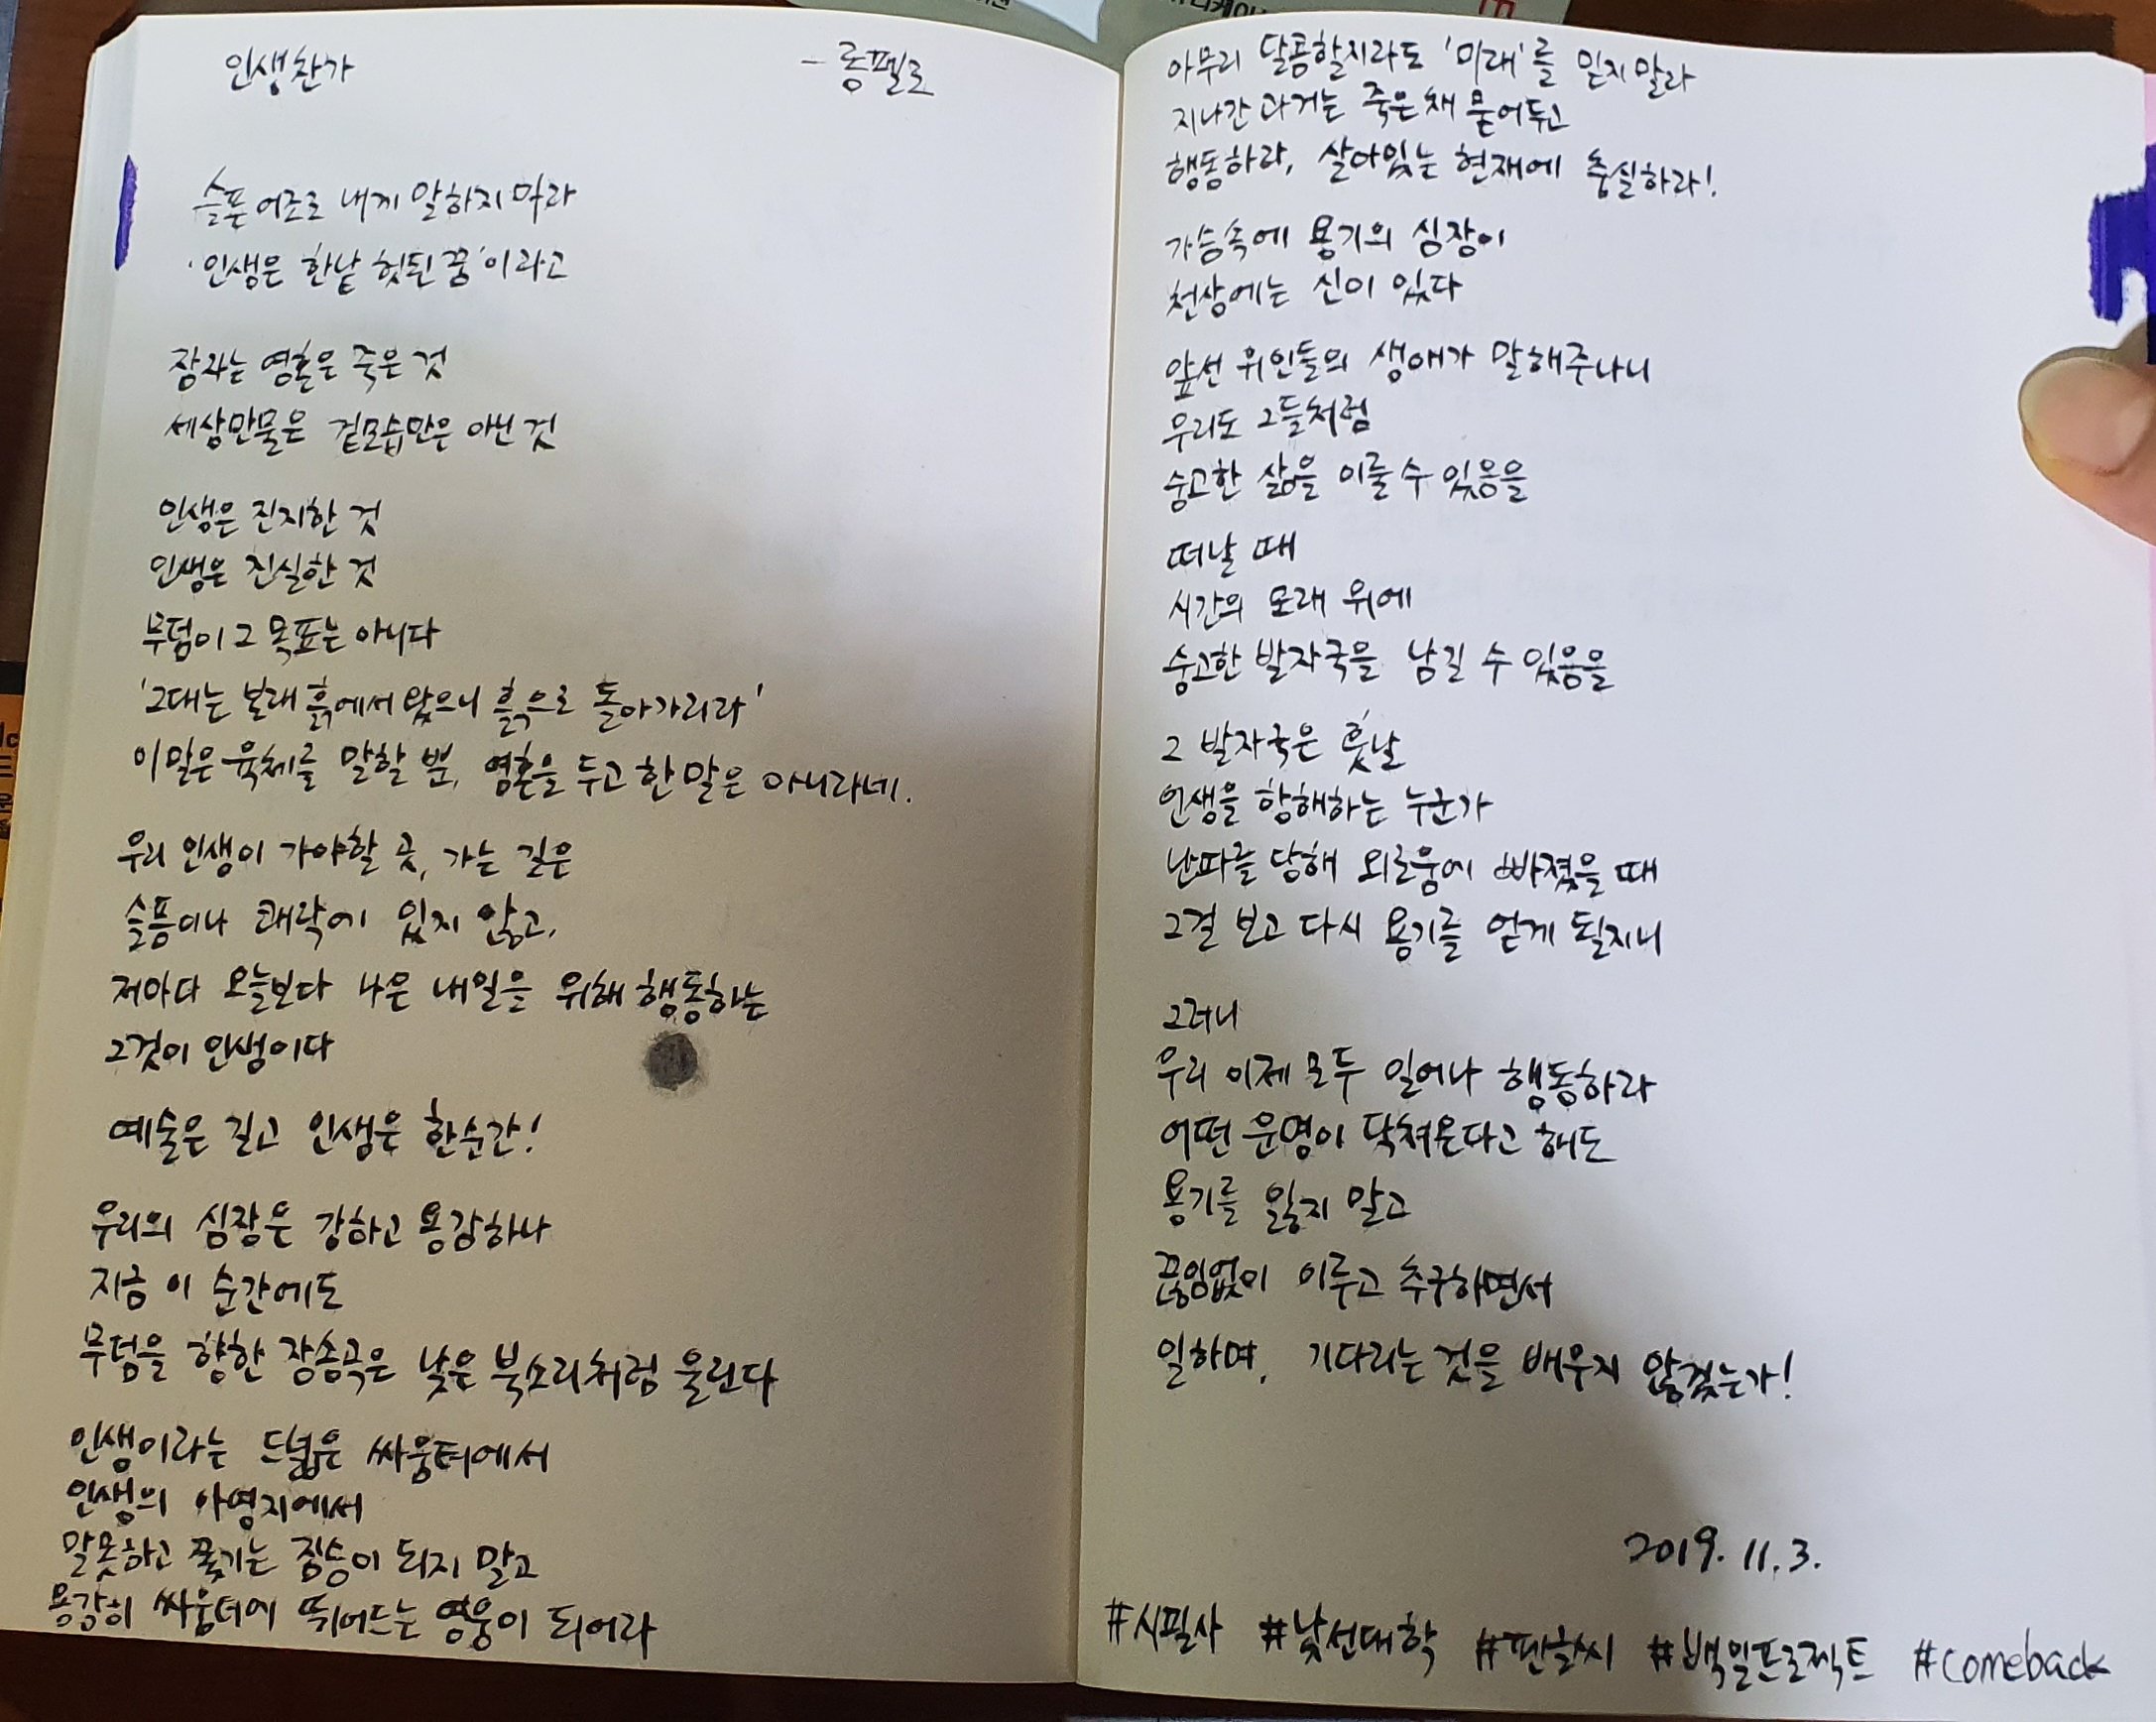 인생찬가 - 롱펠로
슬픈 어조로 내게 말하지 마라
'인생은 한낱 헛된 꿈'이라고
잠자는 영혼은 죽은 것
세상만물은 겉모습만은 아닌 것
인생은 진지한 것
인생은 진실한 것
무덤이 그 목표는 아니다
'그대는 본래 흙에서 왔으니 흙으로 돌아가리라'
이말은 육체를 말할 뿐, 영혼을 두고 한 말은 아니라네.
우리 인생이 가야할 곳, 가는 길은
슬픔이나 쾌락에 있지 않고,
저마다 오늘보다 나은 내일을 위해 행동하는
그것이 인생이다
예술은 길고 인생은 한순간!
우리의 심장은 강하고 용감하나
지금 이 순간에도
무덤을 향한 장송곡은 낮은 북소리처럼 울린다
인생이라는 드넓은 싸움터에서
인생의 야영지에서
말못하고 쫓기는 짐승이 되지 말고
용감히 싸움터에 뛰어드는 영웅이 되어라
아무리 달콤할지라도 '미래'를 믿지 말라
지나간 과거는 죽은 채 묻어두고
행동하라, 살아있는 현재에 충실하라!
가슴속에 용기의 심장이
천상에는 신이 있다
앞선 위인들의 생애가 말해주나니
우리도 그들처럼
숭고한 삶을 이룰 수 있음을
떠날 때
시간의 모래 위에
숭고한 발자국을 남길 수 있음을
그 발자국은 훗날
인생을 항해하는 누군가
난파를 당해 외로움에 빠졌을 때
그걸 보고 다시 용기를 얻게 될지니
그러니
우리 이제 모두 일어나 행동하라
어떤 운명이 닥쳐온다고 해도
용기를 잃지 말고
끊임없이 이루고 추구하면서
일하며, 기다리는 것을 배우지 않겠는가!
2019. 11. 3.
#시필사 #낯선대학 #펜글씨 #백일프로젝트 #comeback